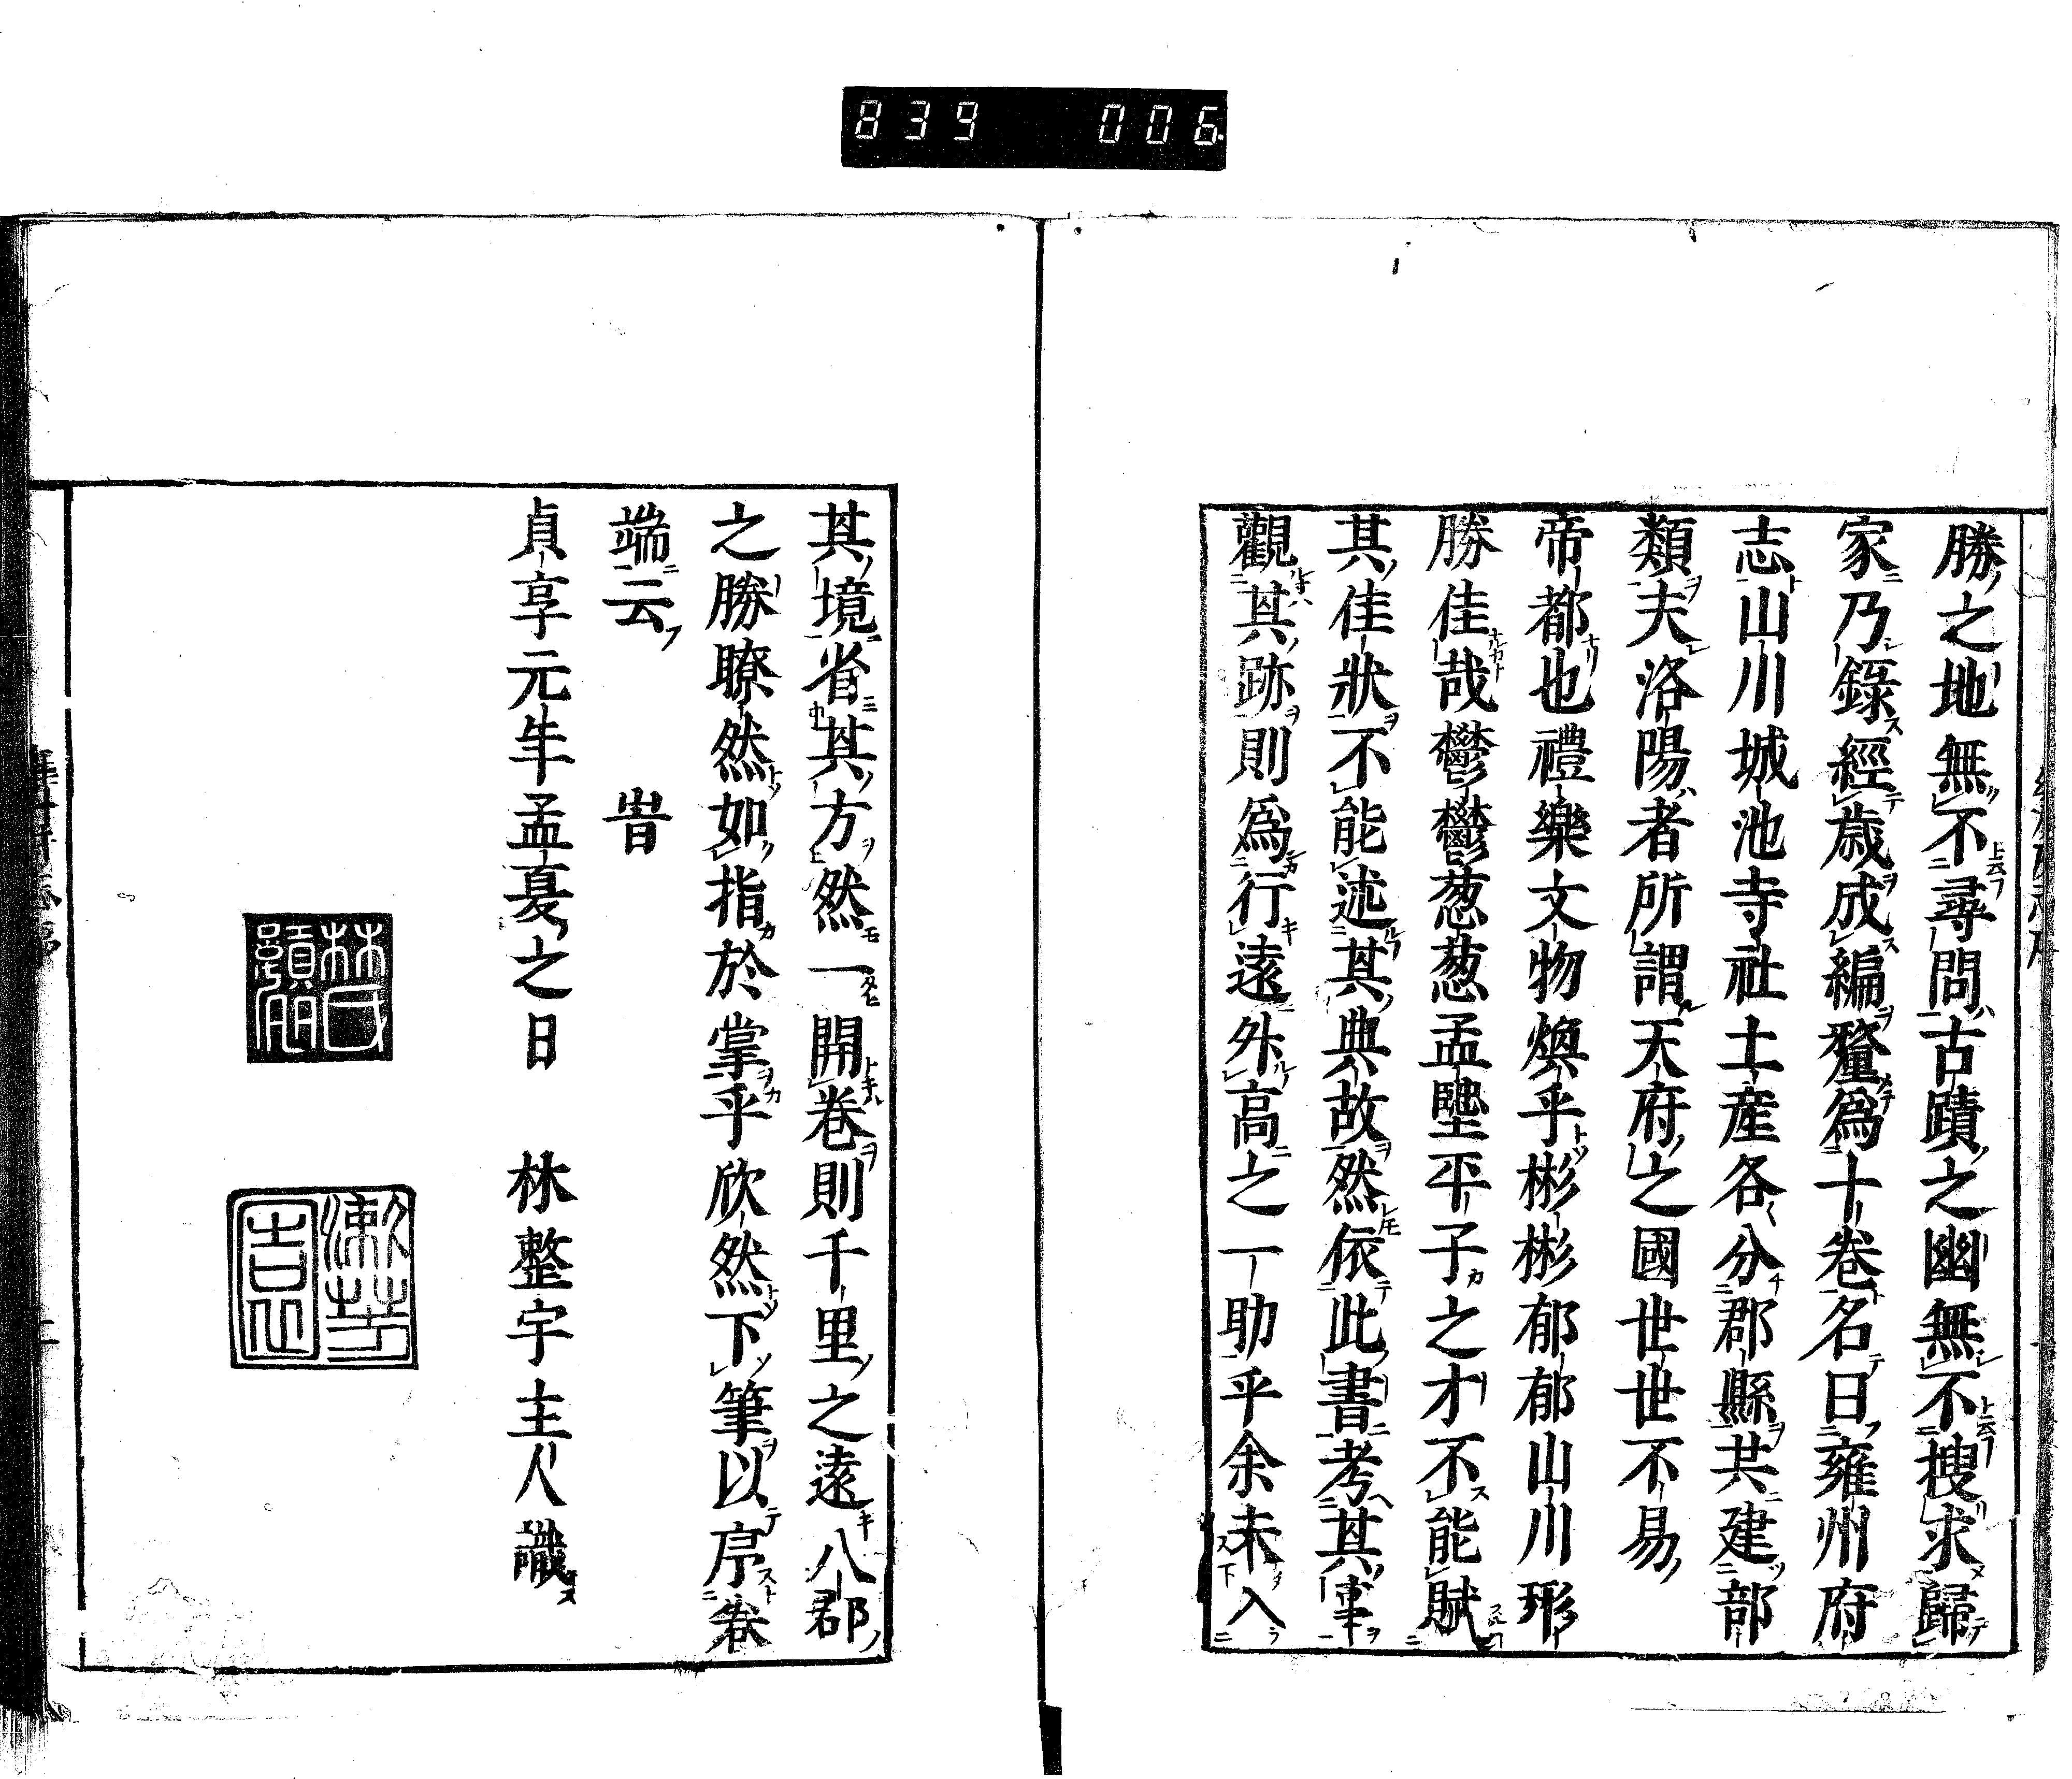 839 006
勝之地無不尋問古蹟之幽無不搜求歸
家乃錄經歲成編釐爲十卷名曰雍州府
志山川城池寺社土產各分郡縣共建部
類夫洛陽者所謂天府之國世世不易
帝都也禮樂文物煥乎彬彬郁郁山川形
勝佳哉鬱鬱葱葱孟堅平子之才不能賦
其佳狀不能述其典故然依此書考其事
觀其跡則爲行遠升高之一助乎余未入
其境省其方然一開卷則千里之遠八郡
之勝瞭然如指於掌乎欣然下筆以序卷
端云 旹
貞享元年孟夏之日 林整宇主人識